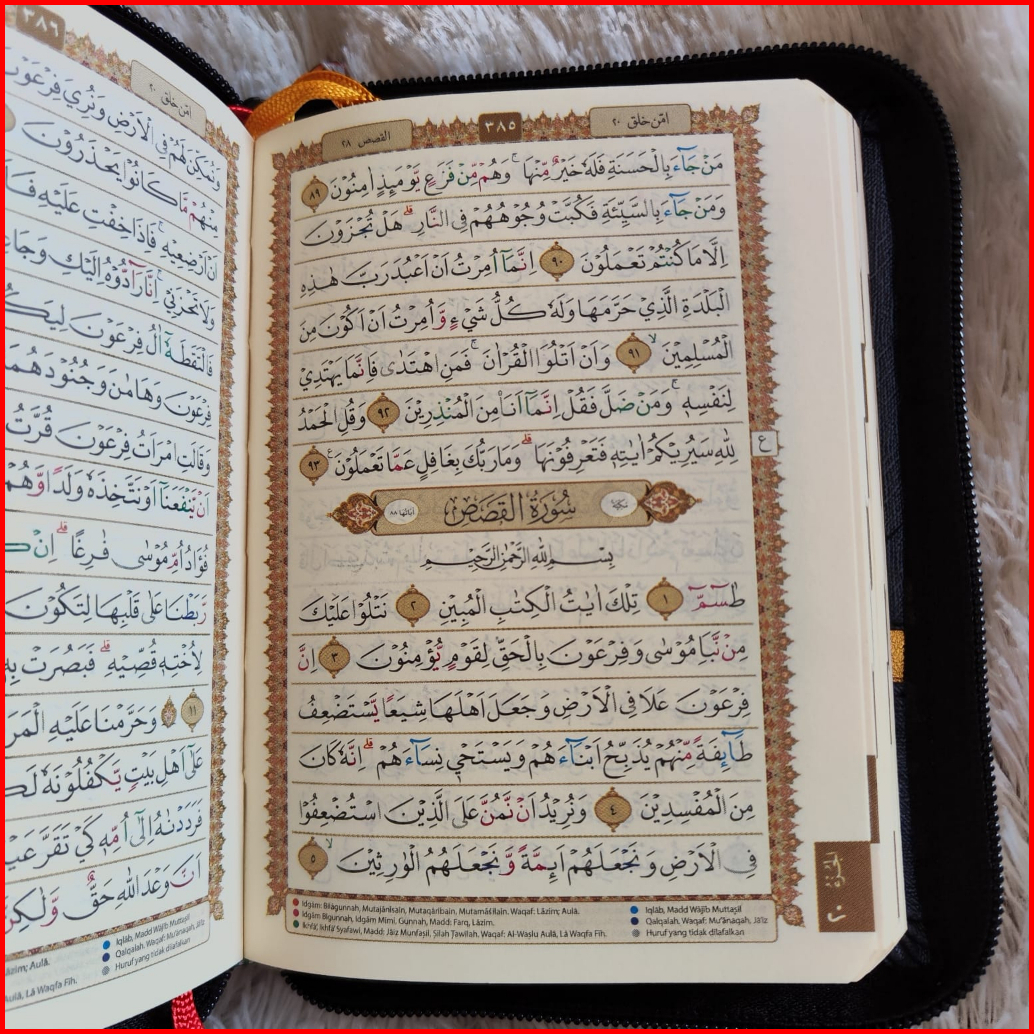 القصص ٢٨
٣٨٥
امّن خلق ٢٠
مَنْ جَآءَ بِالْحَسَنَةِ فَلَهٗ خَيْرٌ مِّنْهَا ۚ وَهُمْ مِّنْ فَزَعٍ يَّوْمَىِٕذٍ اٰمِنُوْنَ ٨٩
وَمَنْ جَآءَ بِالسَّيِّئَةِ فَكُبَّتْ وُجُوْهُهُمْ فِى النَّارِۗ هَلْ تُجْزَوْنَ
اِلَّا مَا كُنْتُمْ تَعْمَلُوْنَ ٩٠ اِنَّمَآ اُمِرْتُ اَنْ اَعْبُدَ رَبَّ هٰذِهِ
الْبَلْدَةِ الَّذِيْ حَرَّمَهَا وَلَهٗ كُلُّ شَيْءٍ وَّاُمِرْتُ اَنْ اَكُوْنَ مِنَ
الْمُسْلِمِيْنَ ۙ ٩١ وَاَنْ اَتْلُوَا الْقُرْاٰنَ ۚ فَمَنِ اهْتَدٰى فَاِنَّمَا يَهْتَدِيْ
لِنَفْسِهٖ ۚ وَمَنْ ضَلَّ فَقُلْ اِنَّمَآ اَنَا۠ مِنَ الْمُنْذِرِيْنَ ٩٢ وَقُلِ الْحَمْدُ
لِلّٰهِ سَيُرِيْكُمْ اٰيٰتِهٖ فَتَعْرِفُوْنَهَاۗ وَمَا رَبُّكَ بِغَافِلٍ عَمَّا تَعْمَلُوْنَ ࣖ ٩٣
ع
مكية
سُوْرَةُ الْقَصَصِ
اٰياتها ٨٨
بِسْمِ اللّٰهِ الرَّحْمٰنِ الرَّحِيْمِ
طٰسۤمّۤ ١ تِلْكَ اٰيٰتُ الْكِتٰبِ الْمُبِيْنِ ٢ نَتْلُوْا عَلَيْكَ
مِنْ نَّبَاِ مُوْسٰى وَفِرْعَوْنَ بِالْحَقِّ لِقَوْمٍ يُّؤْمِنُوْنَ ٣ اِنَّ
فِرْعَوْنَ عَلَا فِى الْاَرْضِ وَجَعَلَ اَهْلَهَا شِيَعًا يَّسْتَضْعِفُ
طَاۤىِٕفَةً مِّنْهُمْ يُذَبِّحُ اَبْنَاۤءَهُمْ وَيَسْتَحْيٖ نِسَاۤءَهُمْ ۗ اِنَّهٗ كَانَ
مِنَ الْمُفْسِدِيْنَ ٤ وَنُرِيْدُ اَنْ نَّمُنَّ عَلَى الَّذِيْنَ اسْتُضْعِفُوْا
فِى الْاَرْضِ وَنَجْعَلَهُمْ اَىِٕمَّةً وَّنَجْعَلَهُمُ الْوٰرِثِيْنَ ۙ ٥
Idgām: Bilāgunnah, Mutajānisain, Mutaqāribain, Mutamāṡilain. Waqaf: Lāzim; Aulā.
Idgām Bigunnah, Idgām Mīmī, Gunnah, Madd: Farq, Lāzim.
Ikhfā', Ikhfā' Syafawi, Madd: Jāiz Munfaṣil, Ṣilah Ṭawīlah, Waqaf: Al-Waṣlu Aulā, Lā Waqfa Fīh.
Iqlāb, Madd Wājib Muttaṣil
Qalqalah, Waqaf: Mu'ānaqah, Jāiz
Huruf yang tidak dilafalkan
الجزء ٢٠
٣٨٦
امّن خلق ٢٠
وَنُمَكِّنَ لَهُمْ فِى الْاَرْضِ وَنُرِيَ فِرْعَوْنَ
مِنْهُمْ مَّا كَانُوْا يَحْذَرُوْنَ
اَنْ اَرْضِعِيْهِ ۚ فَاِذَا خِفْتِ عَلَيْهِ
وَلَا تَحْزَنِيْ ۚ اِنَّا رَاۤدُّوْهُ اِلَيْكِ
فَالْتَقَطَهٗٓ اٰلُ فِرْعَوْنَ
فِرْعَوْنَ وَهَامٰنَ وَجُنُوْدَهُمَا
وَقَالَتِ امْرَاَتُ فِرْعَوْنَ قُرَّتُ
اَنْ يَّنْفَعَنَآ اَوْ نَتَّخِذَهٗ وَلَدًا وَّهُمْ
فُؤَادُ اُمِّ مُوْسٰى فٰرِغًا ۗ اِنْ
رَّبَطْنَا عَلٰى قَلْبِهَا لِتَكُوْنَ
لِاُخْتِهٖ قُصِّيْهِ ۗ فَبَصُرَتْ بِهٖ
١١ ۞ وَحَرَّمْنَا عَلَيْهِ
عَلٰٓى اَهْلِ بَيْتٍ يَّكْفُلُوْنَهٗ
فَرَدَدْنٰهُ اِلٰٓى اُمِّهٖ كَيْ تَقَرَّ
اَنَّ وَعْدَ اللّٰهِ حَقٌّ
Lāzim; Aulā.
Aulā, Lā Waqfa Fīh.
Iqlāb, Madd Wājib Muttaṣil
Qalqalah. Waqaf: Mu'ānaqah, Jāiz
Huruf yang tidak dilafalkan